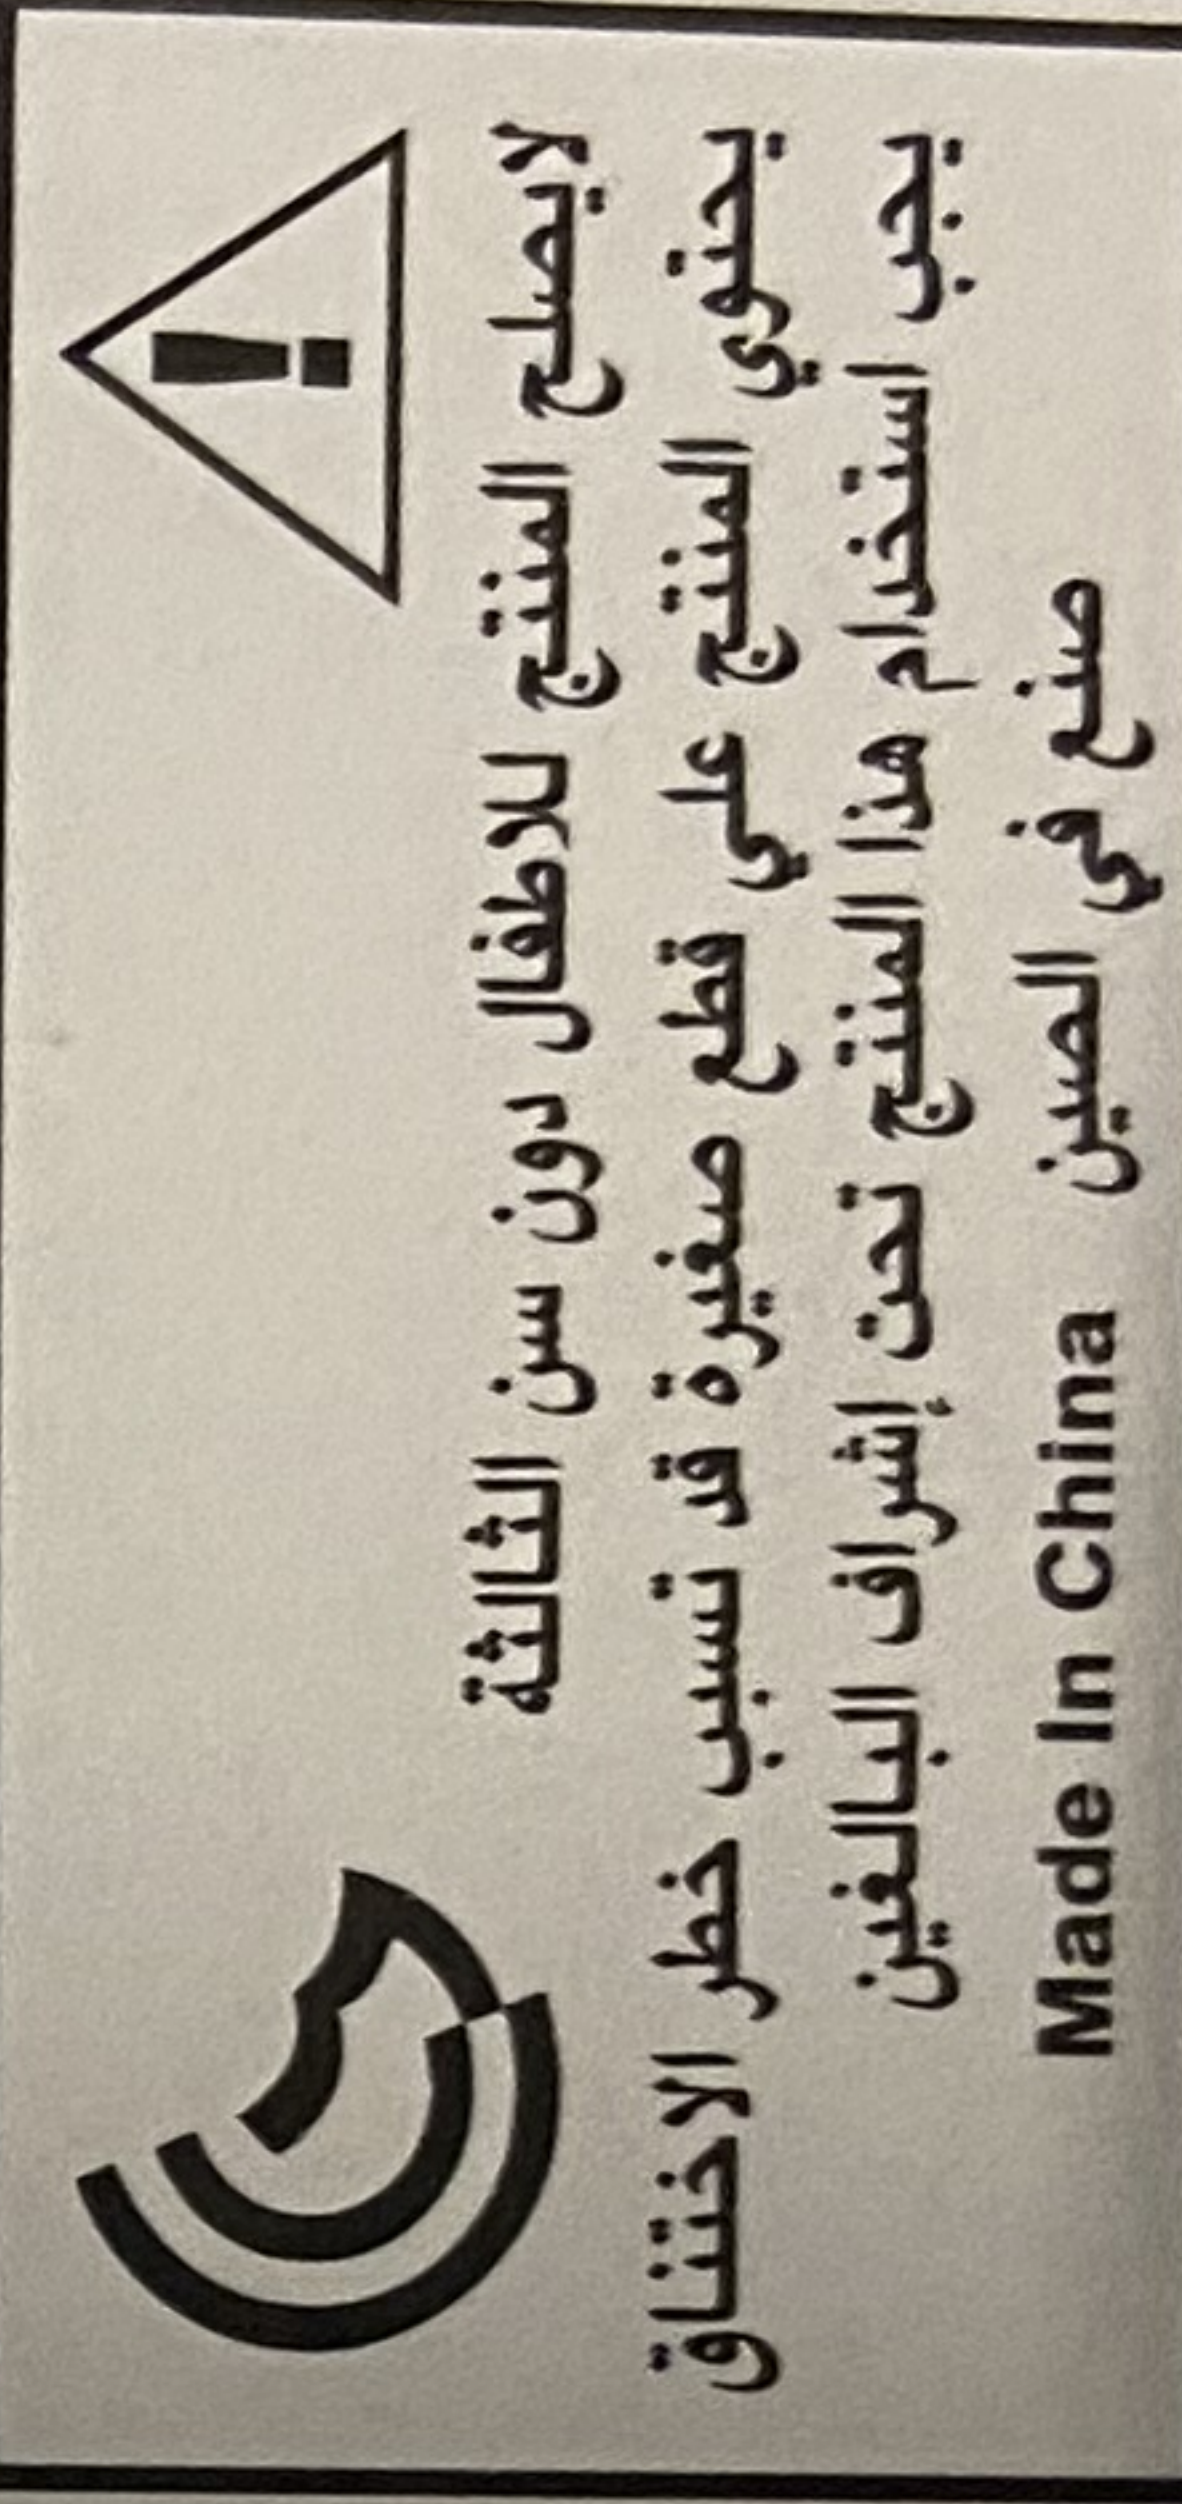 لايصلح المنتج للاطفال دون سن الثالثة
يحتوي المنتج علي قطع صغيرة قد تسبب خطر الاختناق
يجب استخدام هذا المنتج تحت إشراف البالغين
صنع في الصين Made In China